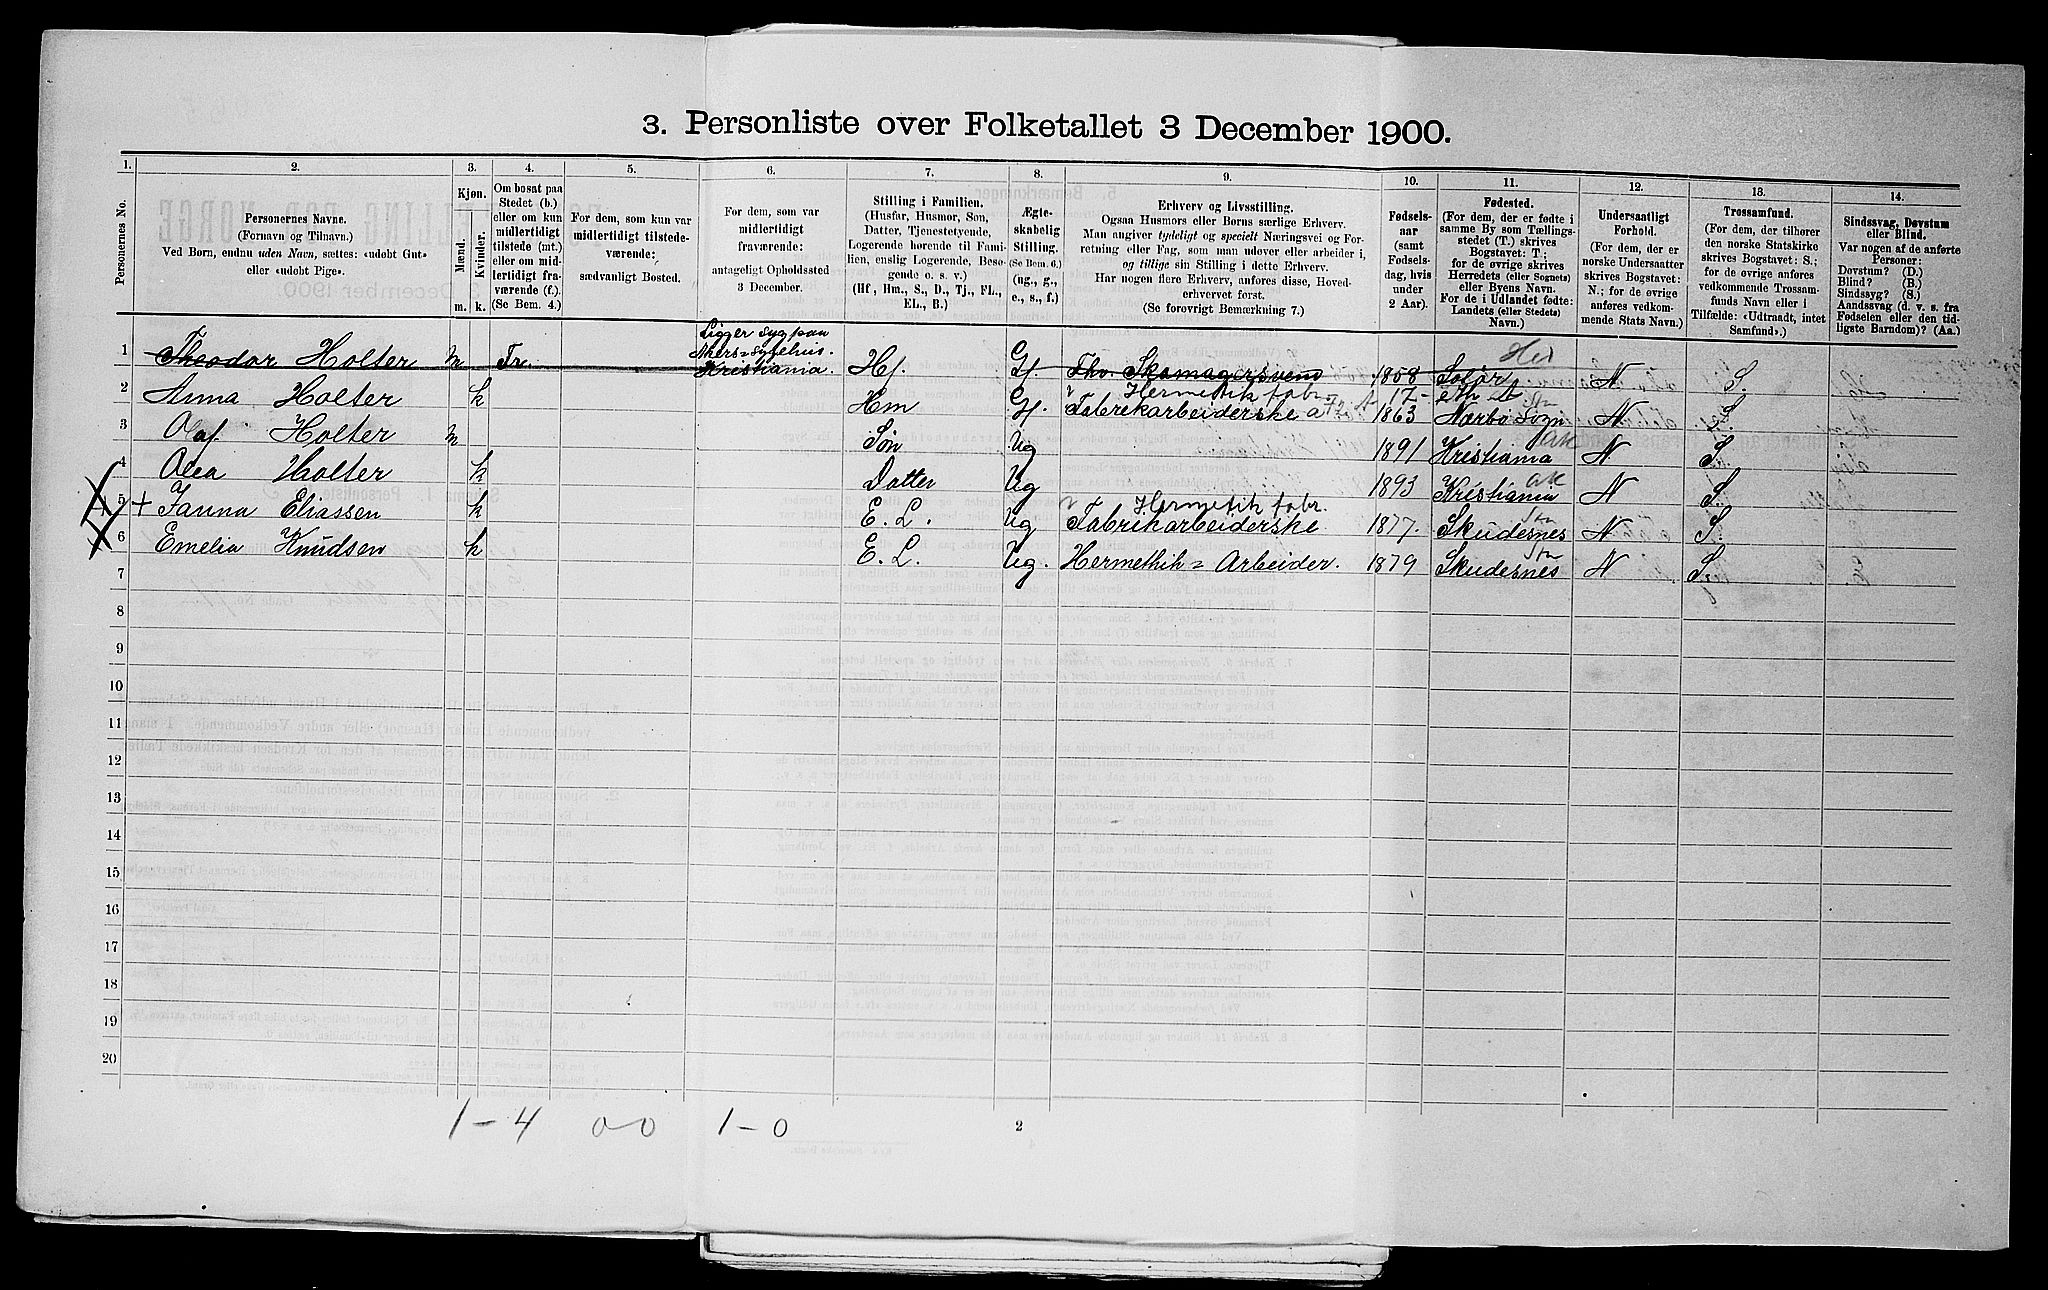 3. Personliste over Folketallet 3 December 1900.
1. 2. 3. 4. 5. 6. 7. 8. 9. 10. 11. 12. 13. 14.
Personernes No.
Personernes Navne.
(Fornavn og Tilnavn.)
Ved Børn, endnu uden Navn, sættes: «udøbt Gut»
eller «udøbt Pige».
Kjøn.
Mænd.
Kvinder.
m. k.
Om bosat paa
Stedet (b.)
eller om kun
midlertidigt
tilstede (mt.)
eller om mid-
lertidigt fra-
værende (f.)
(Se Bem. 4.)
For dem, som kun var
midlertidigt tilstede-
værende:
sædvanligt Bosted.
For dem, som var
midlertidigt
fraværende:
antageligt Opholdssted
3 December.
Stilling i Familien.
(Husfar, Husmor, Søn,
Datter, Tjenestetyende,
Logerende hørende til Fami-
lien, enslig Logerende, Besø-
gende o. s. v.)
(Hf, Hm., S., D., Tj., FL.,
EL., B.)
Ægte-
skabelig
Stilling.
(Se Bem. 6.)
(ug., g.,
e., s., f.)
Erhverv og Livsstilling.
Ogsaa Husmors eller Børns særlige Erhverv.
Man angiver tydeligt og specielt Næringsvei og For-
retning eller Fag, som man udøver eller arbeider i,
og tillige sin Stilling i dette Erhverv.
Har nogen flere Erhverv, anføres disse, Hoved-
erhvervet først.
(Se forøvrigt Bemærkning 7.)
Fødsels-
aar
(samt
Fødsels-
dag, hvis
under
2 Aar).
Fødested.
(For dem, der er fødte i
samme By som Tællings-
stedet (T.) skrives
Bogstavet: T.;
for de øvrige skrives
Herredets (eller Sognets)
eller Byens Navn.
For de i Udlandet fødte:
Landets (eller Stedets)
Navn.)
Undersaatligt
Forhold.
(For dem, der er
norske Undersaatter
skrives Bogstavet:
N.; for de øvrige
anføres vedkom-
mende Stats Navn.)
Trossamfund.
(For dem, der tilhører
den norske Statskirke
skrives Bogstavet: S.;
for de øvrige anføres
vedkommende Trossam-
funds Navn eller i
Tilfælde: «Udtraadt, intet
Samfund».)
Sindssvag, Døvstum
eller Blind.
Var nogen af de anførte
Personer:
Døvstum? (D.)
Blind? (B.)
Sindssyg? (S.)
Aandssvag (d. v. s. fra
Fødselen eller den tid-
ligste Barndom)? (Aa.)
Ligger syg paa
Akers=sygehus.
1 Theodor Holter m Fr. Kristiania. Hf. G. Fhv. Skomagersvend 1858 Solør N S.
Hermetik fabr.
2 Anna Holter k Hm G. Fabrekarbeiderske 1863 Nærbø Sogn N S.
3 Olaf Holter m Søn Ug 1891 Kristiania N S.
4 Olea Holter k Datter Ug 1893 Kristiania N S.
Hermetik fabr.
5 + Janna Eliassen k E. L. Ug Fabrikarbeiderske 1877. Skudesnes N S.
6 Emelia Knudsen k E. L. Ug. Hermethik= Arbeider. 1879 Skudesnes N S.
7
8
9
10
11
12
13
14
15
16
17
18
19
20
1-4 00 1-0 2